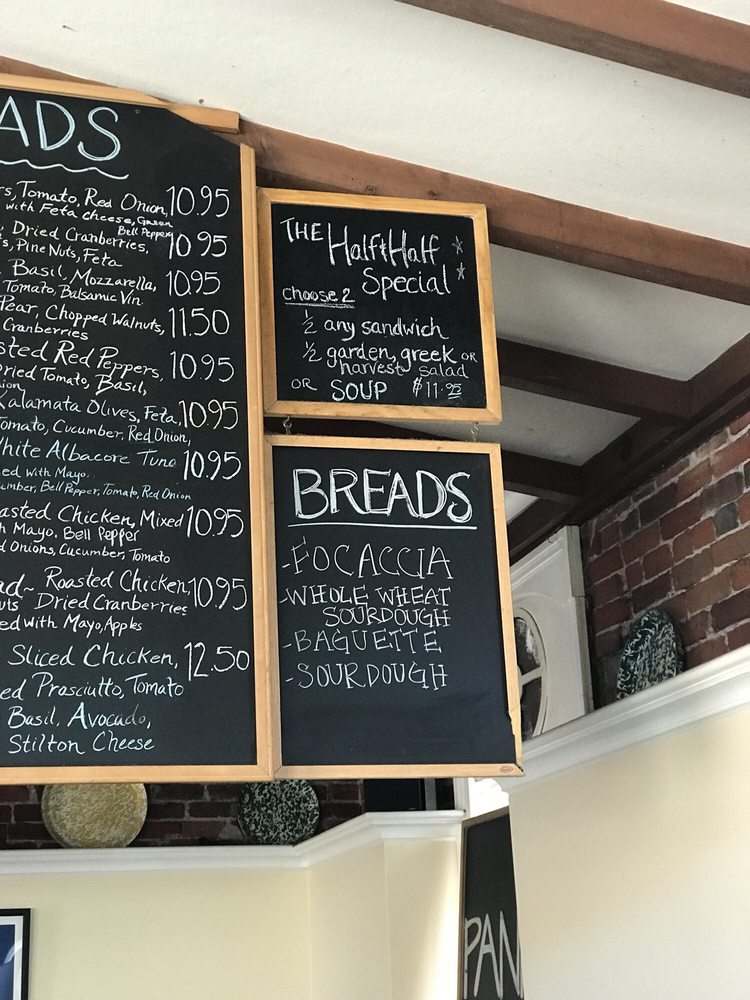 ADS
Tomato, Red Onion, 10.95
with Feta cheese, Green
Bell Peppers
Dried Cranberries, 10.95
Pine Nuts, Feta
Basil, Mozzarella, 10.95
Tomato, Balsamic Vin.
Pear, Chopped Walnuts, 11.50
Cranberries
sted Red Peppers, 10.95
Dried Tomato, Basil,
nion
Kalamata Olives, Feta, 10.95
Tomato, Cucumber, Red Onion,
White Albacore Tuna 10.95
ed with Mayo.
umber, Bell Pepper, Tomato, Red Onion
asted Chicken, Mixed 10.95
h Mayo, Bell Pepper
d Onions, Cucumber, Tomato
ad~ Roasted Chicken, 10.95
uts Dried Cranberries
ed with Mayo, Apples
Sliced Chicken, 12.50
ed Prasciutto, Tomato
Basil, Avocado,
Stilton Cheese
THE Half & Half
Special
choose 2
½ any sandwich
½ garden, greek or
harvest salad
OR SOUP $11.95
BREADS
-FOCACCIA
-WHOLE WHEAT
SOURDOUGH
-BAGUETTE
-SOURDOUGH
PAN